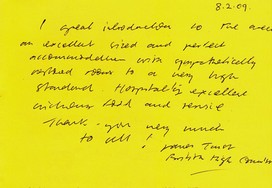 8.2.09.
A great introduction to the area
an excellent sized and perfect
accommodation with sympathetically
restored rooms to a very high
standard. Hospitality excellent
and
Thank-you very much
to all! James
British High Commis